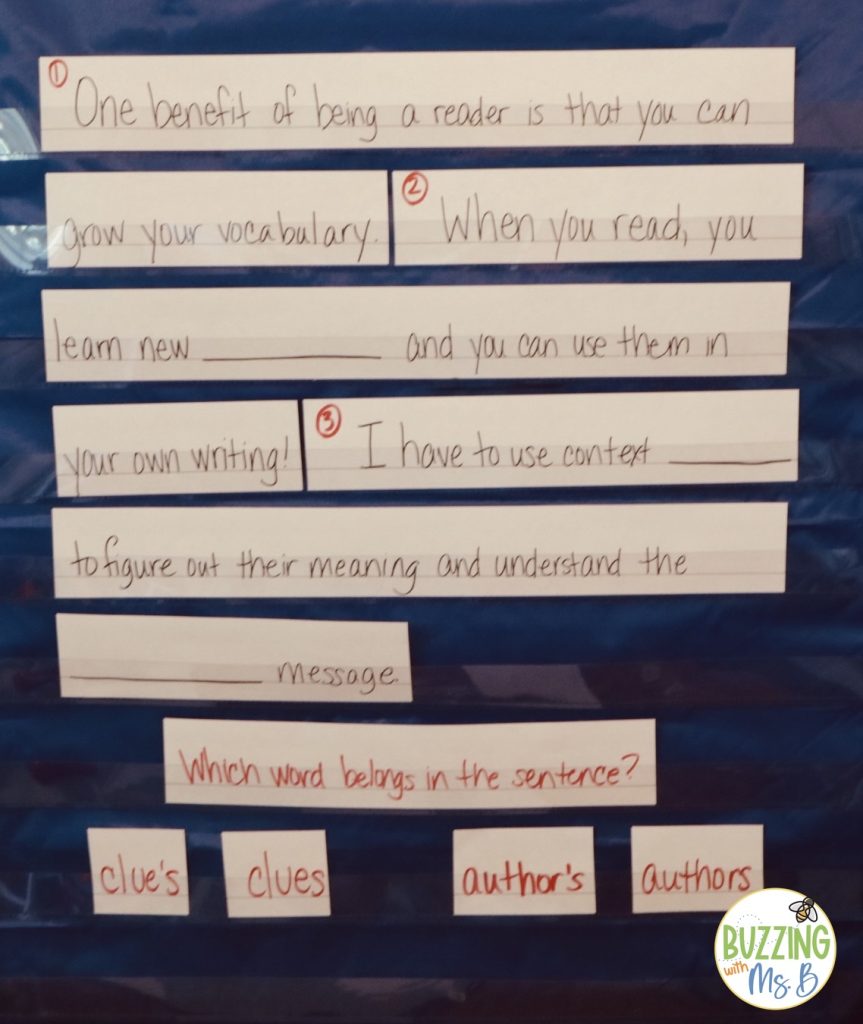 ① One benefit of being a reader is that you can
grow your vocabulary. ② When you read, you
learn new __________ and you can use them in
your own writing! ③ I have to use context ________
to figure out their meaning and understand the
__________ message.
Which word belongs in the sentence?
clue's clues author's authors
BUZZING
with Ms. B